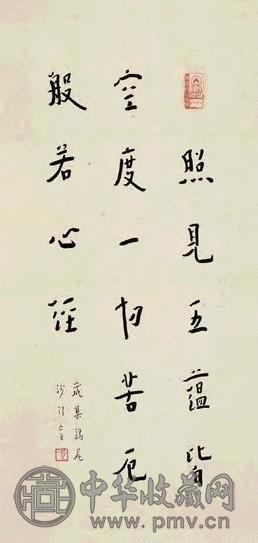 照見五蘊皆
空度一切苦厄
般若心經
中华收藏网
www.pmv.cn